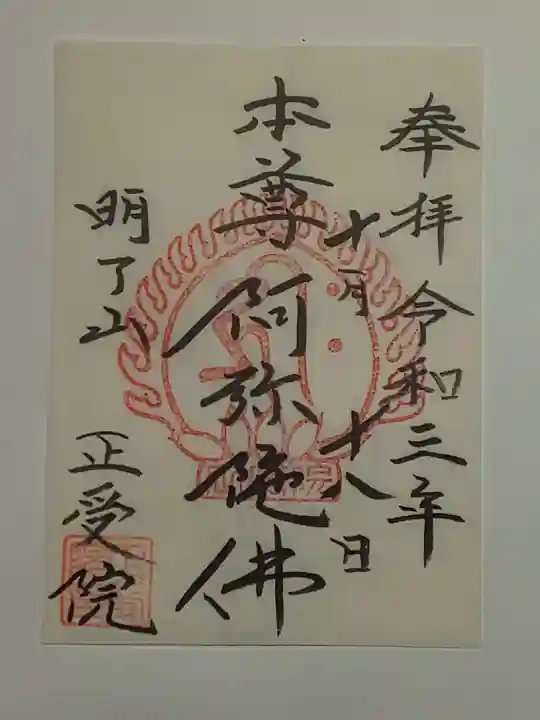 奉拝 令和三年
十月十八日
本尊 阿弥陀佛
明了山 正受院